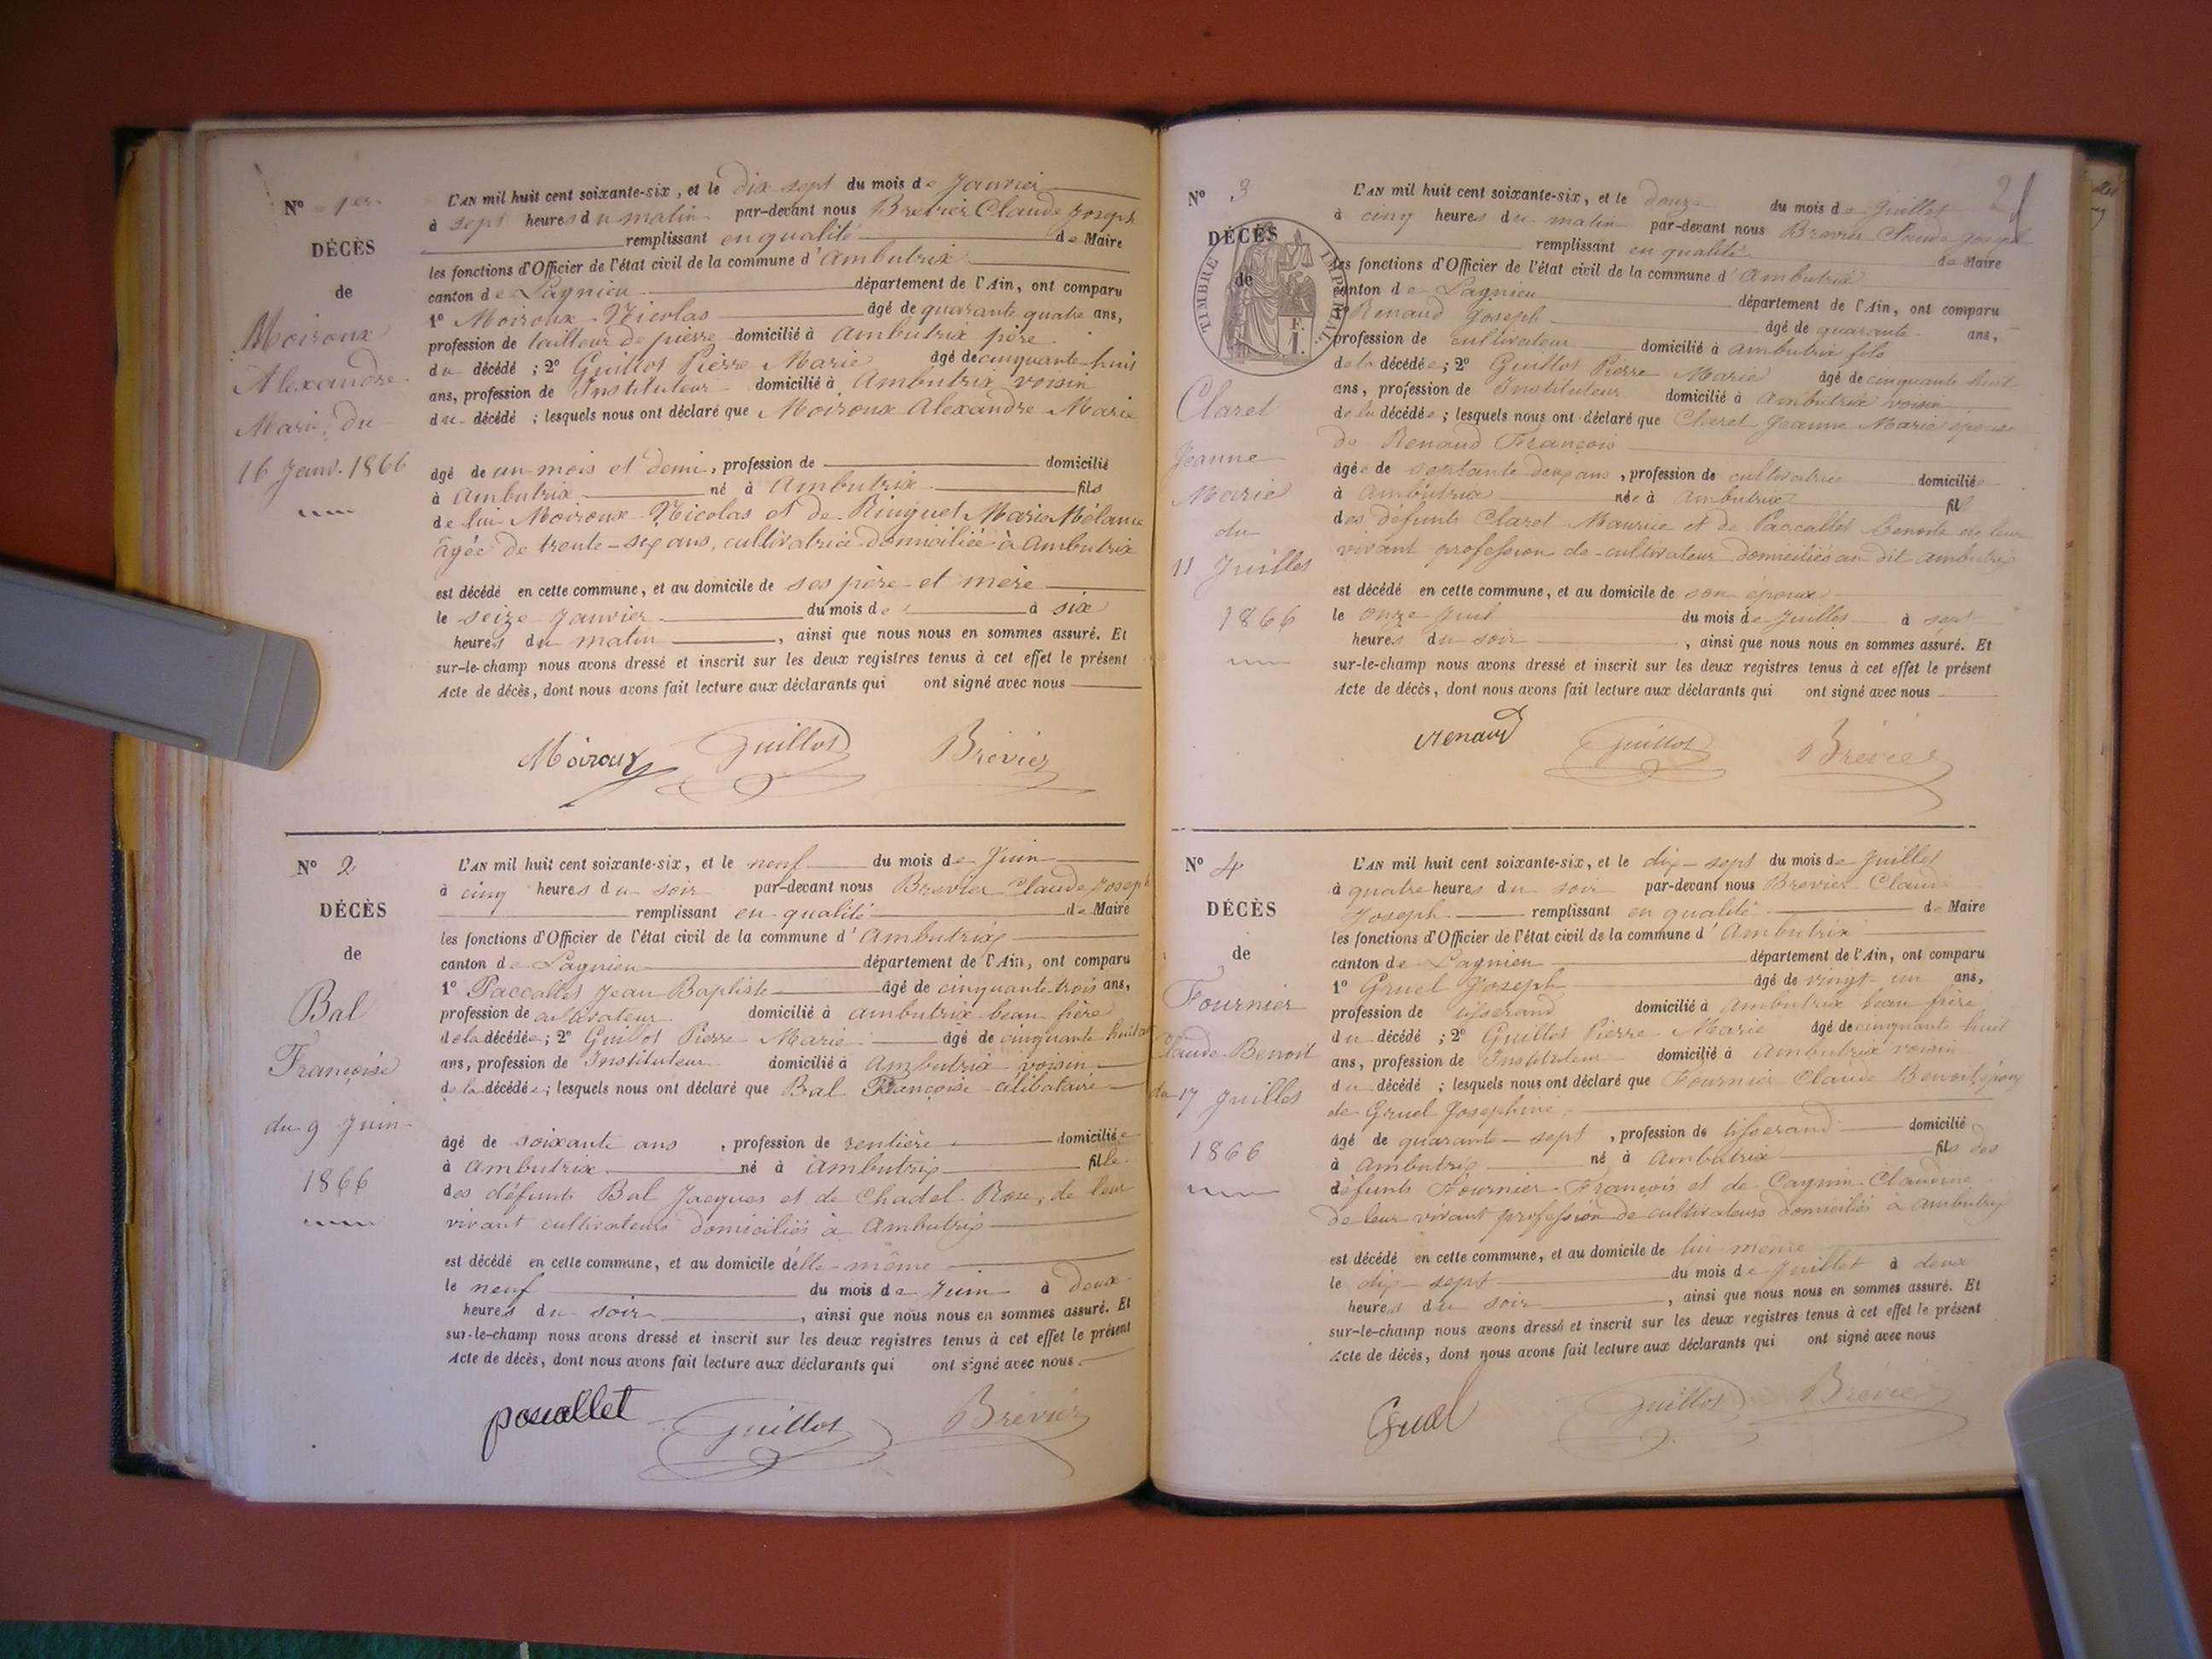 N° 1er
DÉCÈS
de
Moiroux
Alexandre
Marie, du
16 Janv. 1866
L'AN mil huit cent soixante-six, et le dix sept du mois de Janvier
à sept heures du matin par-devant nous Brevier Claude Joseph
remplissant en qualité de Maire
les fonctions d'Officier de l'état civil de la commune d'Ambutrix
canton de Lagnieu département de l'Ain, ont comparu
1° Moiroux Nicolas âgé de quarante quatre ans,
profession de tailleur de pierre domicilié à Ambutrix père
du décédé ; 2° Guillot Pierre Marie âgé de cinquante-huit
ans, profession de Instituteur domicilié à Ambutrix voisin
du décédé ; lesquels nous ont déclaré que Moiroux Alexandre Marie
âgé de un mois et demi, profession de domicilié
à Ambutrix né à Ambutrix fils
de lui Moiroux Nicolas et de Ringuet Marie Mélanie
âgée de trente-six ans, cultivatrice domiciliée à Ambutrix
est décédé en cette commune, et au domicile de ses père et mère
le seize Janvier du mois de à six
heures du matin, ainsi que nous nous en sommes assuré. Et
sur-le-champ nous avons dressé et inscrit sur les deux registres tenus à cet effet le présent
Acte de décès, dont nous avons fait lecture aux déclarants qui ont signé avec nous
Moiroux Guillot Brévier
N° 2
DÉCÈS
de
Bal
Françoise
du 9 Juin
1866
L'AN mil huit cent soixante-six, et le neuf du mois de Juin
à cinq heures du soir par-devant nous Brevier Claude Joseph
remplissant en qualité de Maire
les fonctions d'Officier de l'état civil de la commune d'Ambutrix
canton de Lagnieu département de l'Ain, ont comparu
1° Paccallet Jean Baptiste âgé de cinquante trois ans,
profession de cultivateur domicilié à Ambutrix beau frère
de la décédée ; 2° Guillot Pierre Marie âgé de cinquante huit
ans, profession de Instituteur domicilié à Ambutrix voisin
de la décédée ; lesquels nous ont déclaré que Bal Françoise célibataire
âgé de soixante ans, profession de rentière domiciliée
à Ambutrix né à Ambutrix fille
des défunts Bal Jacques et de Chadel Rose, de leur
vivant cultivateurs domiciliés à Ambutrix
est décédé en cette commune, et au domicile d'elle-même
le neuf du mois de Juin à deux
heures du soir, ainsi que nous nous en sommes assuré. Et
sur-le-champ nous avons dressé et inscrit sur les deux registres tenus à cet effet le présent
Acte de décès, dont nous avons fait lecture aux déclarants qui ont signé avec nous
Guillot Brévier
2
N° 3
DÉCÈS
de
TIMBRE IMPERIAL
F.
1.
Claret
Jeanne
Marie
du
11 Juillet
1866
L'AN mil huit cent soixante-six, et le douze du mois de Juillet
à cinq heures du matin par-devant nous Brevier Claude Joseph
remplissant en qualité de Maire
les fonctions d'Officier de l'état civil de la commune d'Ambutrix
canton de Lagnieu département de l'Ain, ont comparu
1° Renaud Joseph âgé de quarante ans,
profession de cultivateur domicilié à Ambutrix fils
de la décédée ; 2° Guillot Pierre Marie âgé de cinquante huit
ans, profession de Instituteur domicilié à Ambutrix voisin
de la décédée ; lesquels nous ont déclaré que Claret Jeanne Marie épouse
de Renaud François
âgée de septante deux ans, profession de cultivatrice domiciliée
à Ambutrix née à Ambutrix fille
des défunts Claret Maurice et de Paccallet Benoite de leur
vivant profession de cultivateur domiciliés au dit Ambutrix
est décédé en cette commune, et au domicile de son époux
le onze Juil du mois de Juillet à sept
heures du soir, ainsi que nous nous en sommes assuré. Et
sur-le-champ nous avons dressé et inscrit sur les deux registres tenus à cet effet le présent
Acte de décès, dont nous avons fait lecture aux déclarants qui ont signé avec nous
renaud Guillot Brévier
N° 4
DÉCÈS
de
Fournier
Claude Benoit
du 17 Juillet
1866
L'AN mil huit cent soixante-six, et le dix-sept du mois de Juillet
à quatre heures du soir par-devant nous Brevier Claude
Joseph remplissant en qualité de Maire
les fonctions d'Officier de l'état civil de la commune d'Ambutrix
canton de Lagnieu département de l'Ain, ont comparu
1° Gruel Joseph âgé de vingt un ans,
profession de tisserand domicilié à Ambutrix beau frère
du décédé ; 2° Guillot Pierre Marie âgé de cinquante huit
ans, profession de Instituteur domicilié à Ambutrix voisin
du décédé ; lesquels nous ont déclaré que Fournier Claude Benoit, époux
de Gruel Josephine
âgé de quarante-sept, profession de tisserand domicilié
à Ambutrix né à Ambutrix fils des
défunts Fournier François et de Claudine
de leur vivant profession de cultivateurs domiciliés à Ambutrix
est décédé en cette commune, et au domicile de lui même
le dix-sept du mois de Juillet à deux
heures du soir, ainsi que nous nous en sommes assuré. Et
sur-le-champ nous avons dressé et inscrit sur les deux registres tenus à cet effet le présent
Acte de décès, dont nous avons fait lecture aux déclarants qui ont signé avec nous
Gruel Guillot Brévier